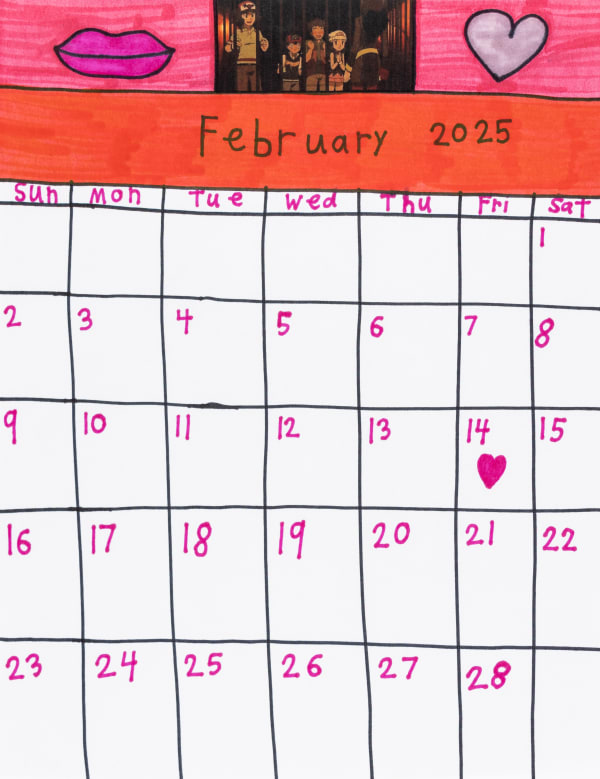 February 2025
Sun Mon Tue Wed Thu Fri Sat
1
2 3 4 5 6 7 8
9 10 11 12 13 14 15
16 17 18 19 20 21 22
23 24 25 26 27 28